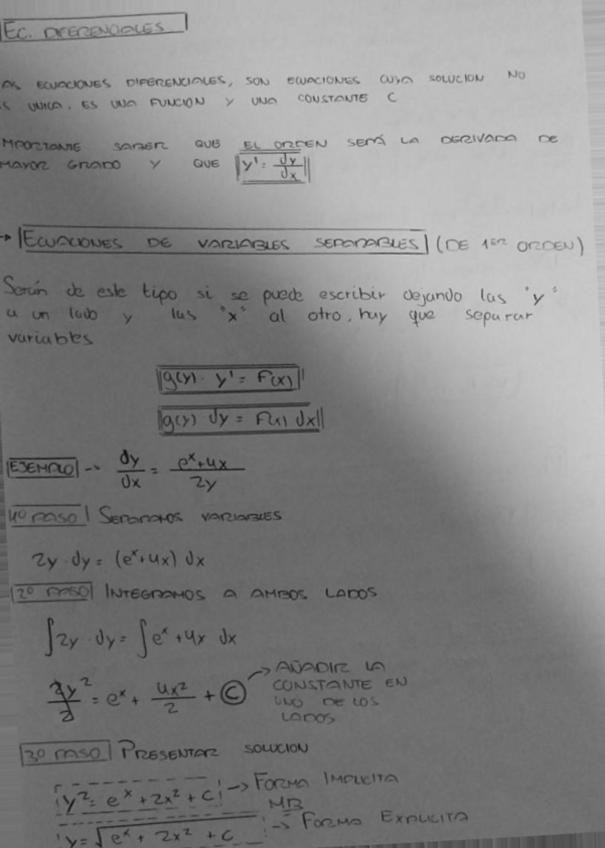 EC. DIFERENCIALES
AS ECUACIONES DIFERENCIALES, SON ECUACIONES CUYA SOLUCION NO
S UNICA, ES UNA FUNCION Y UNA CONSTANTE C
MPORTANTE SABER QUE EL ORDEN SERÁ LA DERIVADA DE
MAYOR GRADO Y QUE y' = dy/dx
→ ECUACIONES DE VARIABLES SEPARABLES (DE 1er ORDEN)
Serán de este tipo si se puede escribir dejando las "y"
a un lado y las "x" al otro, hay que separar
variables
g(y) · y' = F(x)
g(y) dy = F(x) dx
EJEMPLO → dy/dx = (e^x+4x)/2y
1º PASO SEPARAMOS VARIABLES
2y · dy = (e^x+4x) dx
2º PASO INTEGRAMOS A AMBOS LADOS
∫2y · dy = ∫e^x + 4x dx
2y²/2 = e^x + 4x²/2 + C → AÑADIR LA
CONSTANTE EN
UNO DE LOS
LADOS
3º PASO PRESENTAR SOLUCION
y² = e^x + 2x² + C → FORMA IMPLICITA
y = √(e^x + 2x² + C) → FORMA EXPLICITA